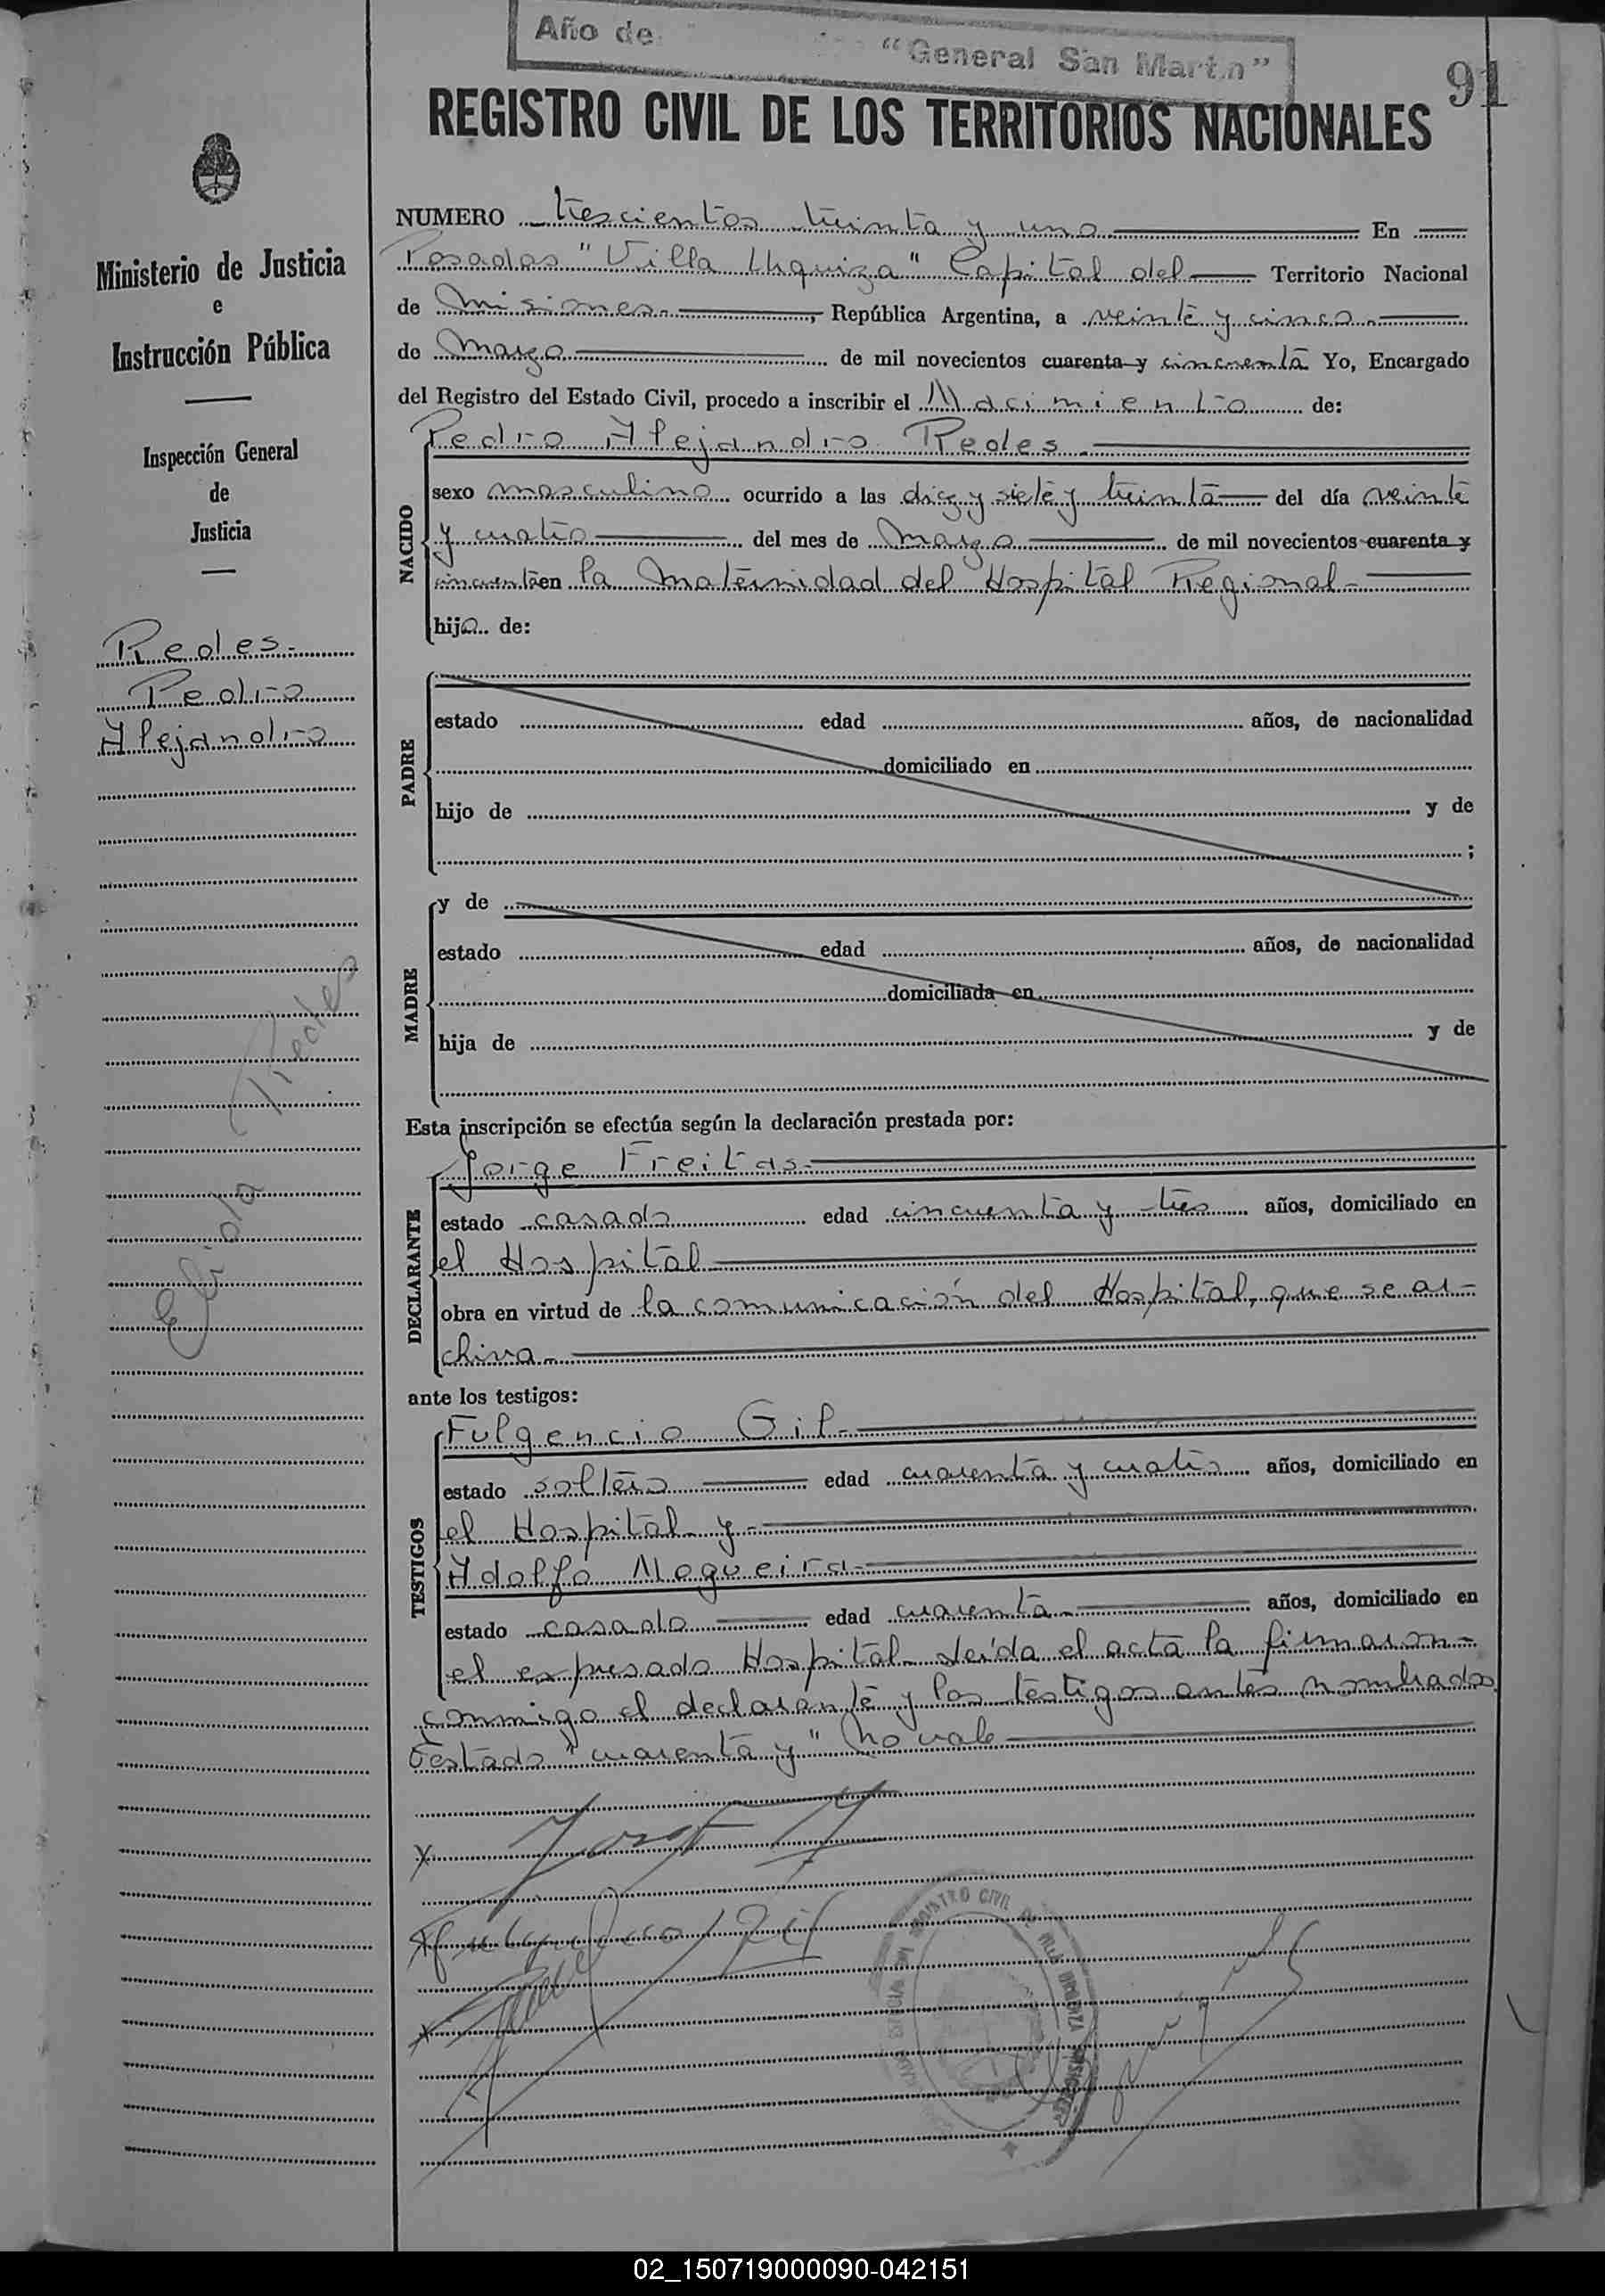 Año de "General San Martin"
91
REGISTRO CIVIL DE LOS TERRITORIOS NACIONALES
Ministerio de Justicia
e
Instrucción Pública
Inspección General
de
Justicia
Redes.
Pedro
Alejandro
Redes
Elida
NUMERO trescientos treinta y uno En
Posadas "Villa Urquiza" Capital del Territorio Nacional
de Misiones, República Argentina, a veinte y cinco
de Marzo de mil novecientos cuarenta y cincuenta Yo, Encargado
del Registro del Estado Civil, procedo a inscribir el Nacimiento de:
Pedro Alejandro Redes
NACIDO
sexo masculino ocurrido a las diez y siete y treinta del día veinte
y cuatro del mes de Marzo de mil novecientos cuarenta y
cincuenta en la Maternidad del Hospital Regional
hijo de:
PADRE
estado edad años, de nacionalidad
domiciliado en
hijo de y de
;
MADRE
y de
estado edad años, de nacionalidad
domiciliada en
hija de y de
Esta inscripción se efectúa según la declaración prestada por:
DECLARANTE
Jorge Freitas
estado casado edad cincuenta y tres años, domiciliado en
el Hospital
obra en virtud de la comunicación del Hospital, que se ar-
chiva
ante los testigos:
TESTIGOS
Fulgencio Gil
estado soltero edad cuarenta y cuatro años, domiciliado en
el Hospital y
Adolfo Nogueira
estado casado edad cuarenta años, domiciliado en
el expresado Hospital. Leída el acta la firmaron
conmigo el declarante y los testigos antes nombrados.
Testado "cuarenta y" No vale
Fulgencio Gil
REGISTRO CIVIL DE VILLA URQUIZA MISIONES
02_150719000090-042151